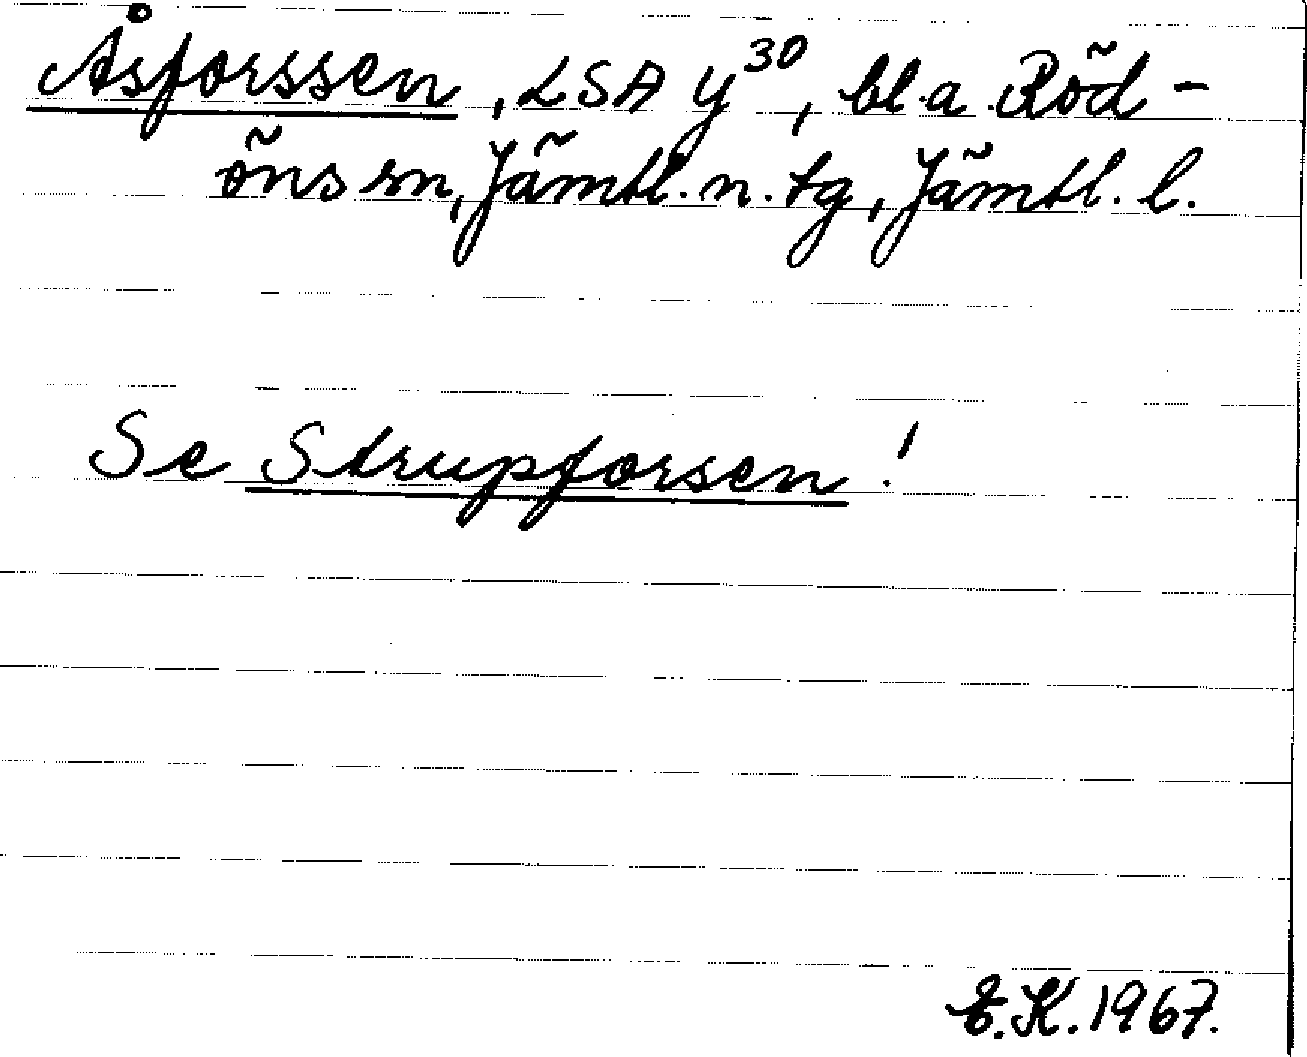 Åsforssen, LSA Y³⁰, bl.a Röd-
öns sn, Jämtl. n. tg, Jämtl. l.
Se Strupforsen!
E.K. 1967.